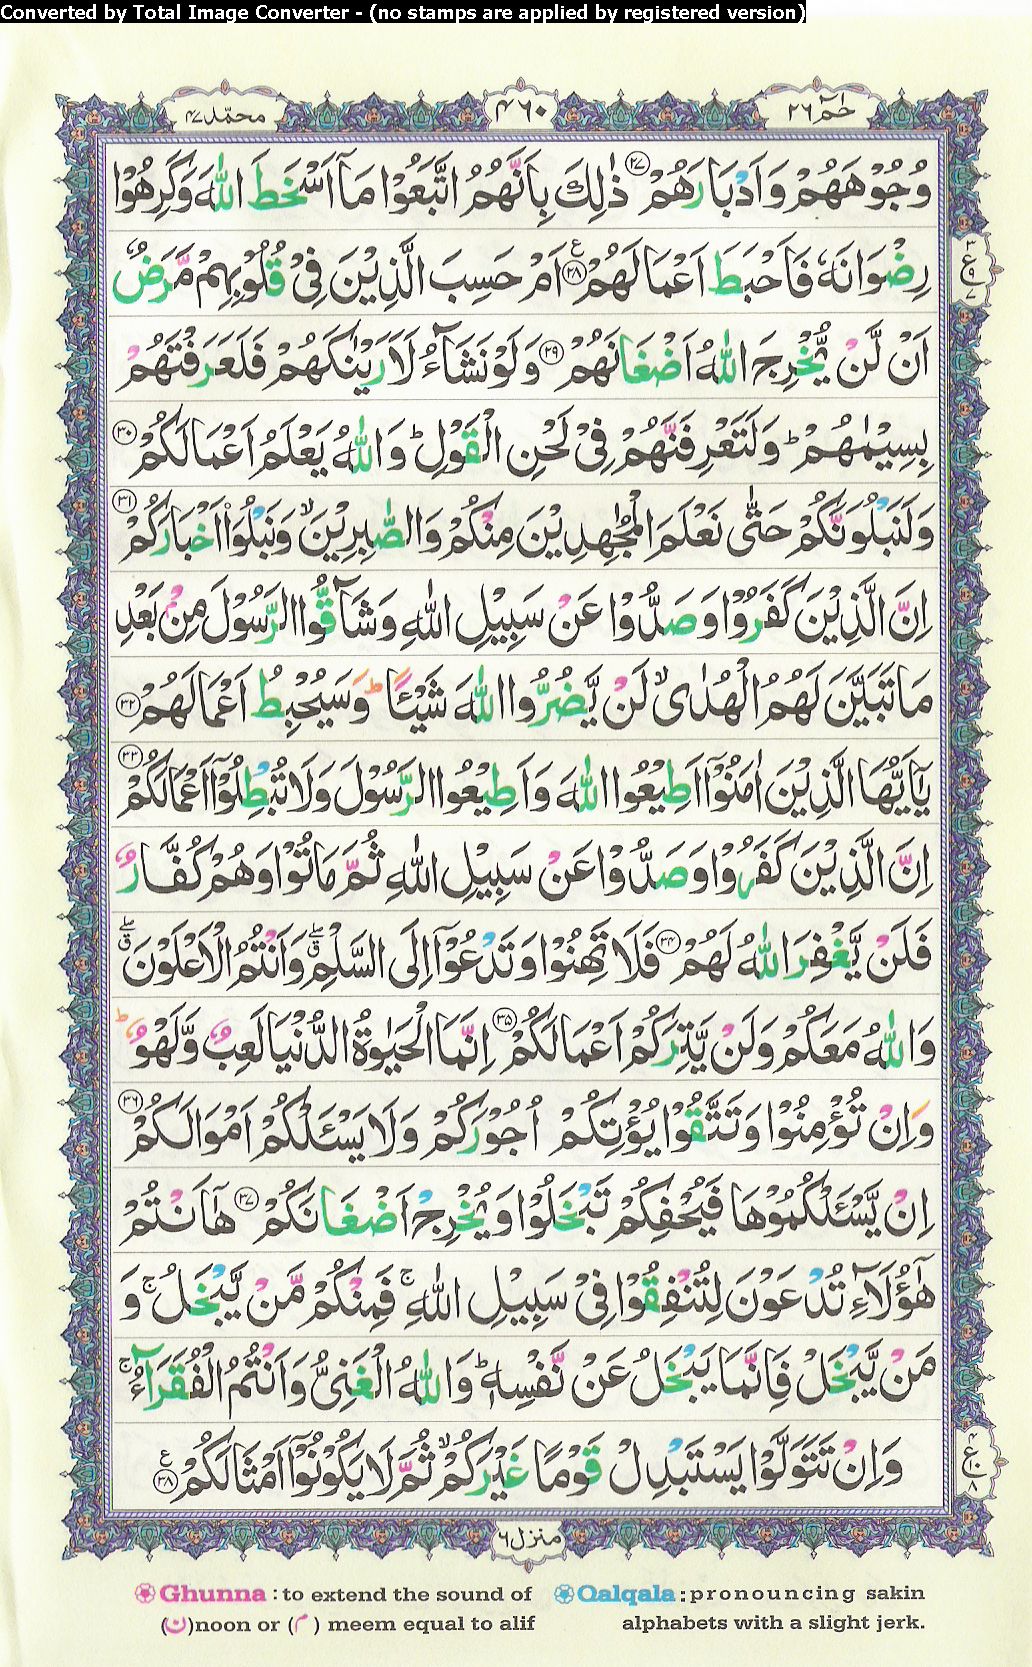 Converted by Total Image Converter - (no stamps are applied by registered version)
حٰمٓ ٢٦
٤٦٠
محمّد ٤٧
وُجُوْهَهُمْ وَاَدْبَارَهُمْ ٢٧ ذٰلِكَ بِاَنَّهُمُ اتَّبَعُوْا مَاۤ اَسْخَطَ اللّٰهَ وَكَرِهُوْا
رِضْوَانَهٗ فَاَحْبَطَ اَعْمَالَهُمْ ٢٨ ع اَمْ حَسِبَ الَّذِيْنَ فِيْ قُلُوْبِهِمْ مَّرَضٌ
٣ ع ٩ ٧
اَنْ لَّنْ يُّخْرِجَ اللّٰهُ اَضْغَانَهُمْ ٢٩ وَلَوْ نَشَآءُ لَاَرَيْنٰكَهُمْ فَلَعَرَفْتَهُمْ
بِسِيْمٰهُمْ ؕ وَلَتَعْرِفَنَّهُمْ فِيْ لَحْنِ الْقَوْلِ ؕ وَاللّٰهُ يَعْلَمُ اَعْمَالَكُمْ ٣٠
وَلَنَبْلُوَنَّكُمْ حَتّٰى نَعْلَمَ الْمُجٰهِدِيْنَ مِنْكُمْ وَالصّٰبِرِيْنَ ۙ وَنَبْلُوَا۟ اَخْبَارَكُمْ ٣١
اِنَّ الَّذِيْنَ كَفَرُوْا وَصَدُّوْا عَنْ سَبِيْلِ اللّٰهِ وَشَآقُّوا الرَّسُوْلَ مِنْۢ بَعْدِ
مَا تَبَيَّنَ لَهُمُ الْهُدٰى ۙ لَنْ يَّضُرُّوا اللّٰهَ شَيْـًٔا ؕ وَسَيُحْبِطُ اَعْمَالَهُمْ ٣٢
يٰۤاَيُّهَا الَّذِيْنَ اٰمَنُوْۤا اَطِيْعُوا اللّٰهَ وَاَطِيْعُوا الرَّسُوْلَ وَلَا تُبْطِلُوْۤا اَعْمَالَكُمْ ٣٣
اِنَّ الَّذِيْنَ كَفَرُوْا وَصَدُّوْا عَنْ سَبِيْلِ اللّٰهِ ثُمَّ مَاتُوْا وَهُمْ كُفَّارٌ
فَلَنْ يَّغْفِرَ اللّٰهُ لَهُمْ ٣٤ فَلَا تَهِنُوْا وَتَدْعُوْۤا اِلَى السَّلْمِ ۖۗ وَاَنْتُمُ الْاَعْلَوْنَ ۖۗ
وَاللّٰهُ مَعَكُمْ وَلَنْ يَّتِرَكُمْ اَعْمَالَكُمْ ٣٥ اِنَّمَا الْحَيٰوةُ الدُّنْيَا لَعِبٌ وَّلَهْوٌ ؕ
وَاِنْ تُؤْمِنُوْا وَتَتَّقُوْا يُؤْتِكُمْ اُجُوْرَكُمْ وَلَا يَسْـَٔلْكُمْ اَمْوَالَكُمْ ٣٦
اِنْ يَّسْـَٔلْكُمُوْهَا فَيُحْفِكُمْ تَبْخَلُوْا وَيُخْرِجْ اَضْغَانَكُمْ ٣٧ هٰۤاَنْتُمْ
هٰۤؤُلَآءِ تُدْعَوْنَ لِتُنْفِقُوْا فِيْ سَبِيْلِ اللّٰهِ ۚ فَمِنْكُمْ مَّنْ يَّبْخَلُ ۚ وَ
مَنْ يَّبْخَلْ فَاِنَّمَا يَبْخَلُ عَنْ نَّفْسِهٖ ؕ وَاللّٰهُ الْغَنِيُّ وَاَنْتُمُ الْفُقَرَآءُ ۚ
وَاِنْ تَتَوَلَّوْا يَسْتَبْدِلْ قَوْمًا غَيْرَكُمْ ۙ ثُمَّ لَا يَكُوْنُوْۤا اَمْثَالَكُمْ ٣٨ ع
٤ ع ١٠ ٨
منزل ٦
Ghunna : to extend the sound of
(ن)noon or (م) meem equal to alif
Qalqala : pronouncing sakin
alphabets with a slight jerk.